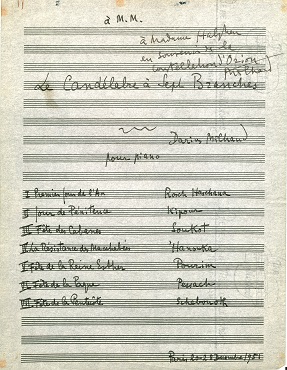 à M. M.
à Madame Halphen
en souvenir de la
constellation d'Orion
Milhaud
Le Candélabre à Sept Branches
Darius Milhaud
pour piano
I Premier jour de l'An Rosch Haschana
II Jour de Pénitence Kipour
III Fête des Cabanes Soukot
IV La Résistance des Macchabées Hanouka
V Fête de la Reine Esther Pourim
VI Fête de la Pâque Pessach
VII Fête de la Pentecôte Schebouoth
Paris 20-28 Décembre 1951